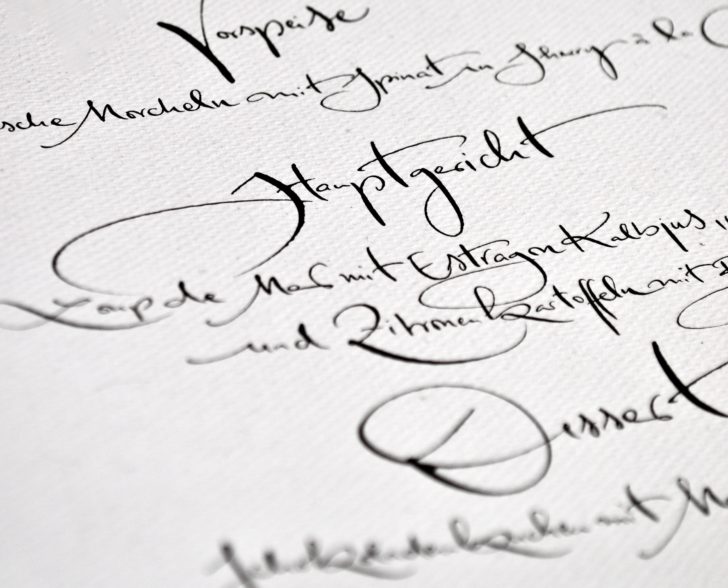 Vorspeise
sche Morcheln mit Spinat in Sherry à la C
Hauptgericht
Loup de Mer mit Estragon Kalbjus
und Zitronenkartoffeln mit
Dessert
mit